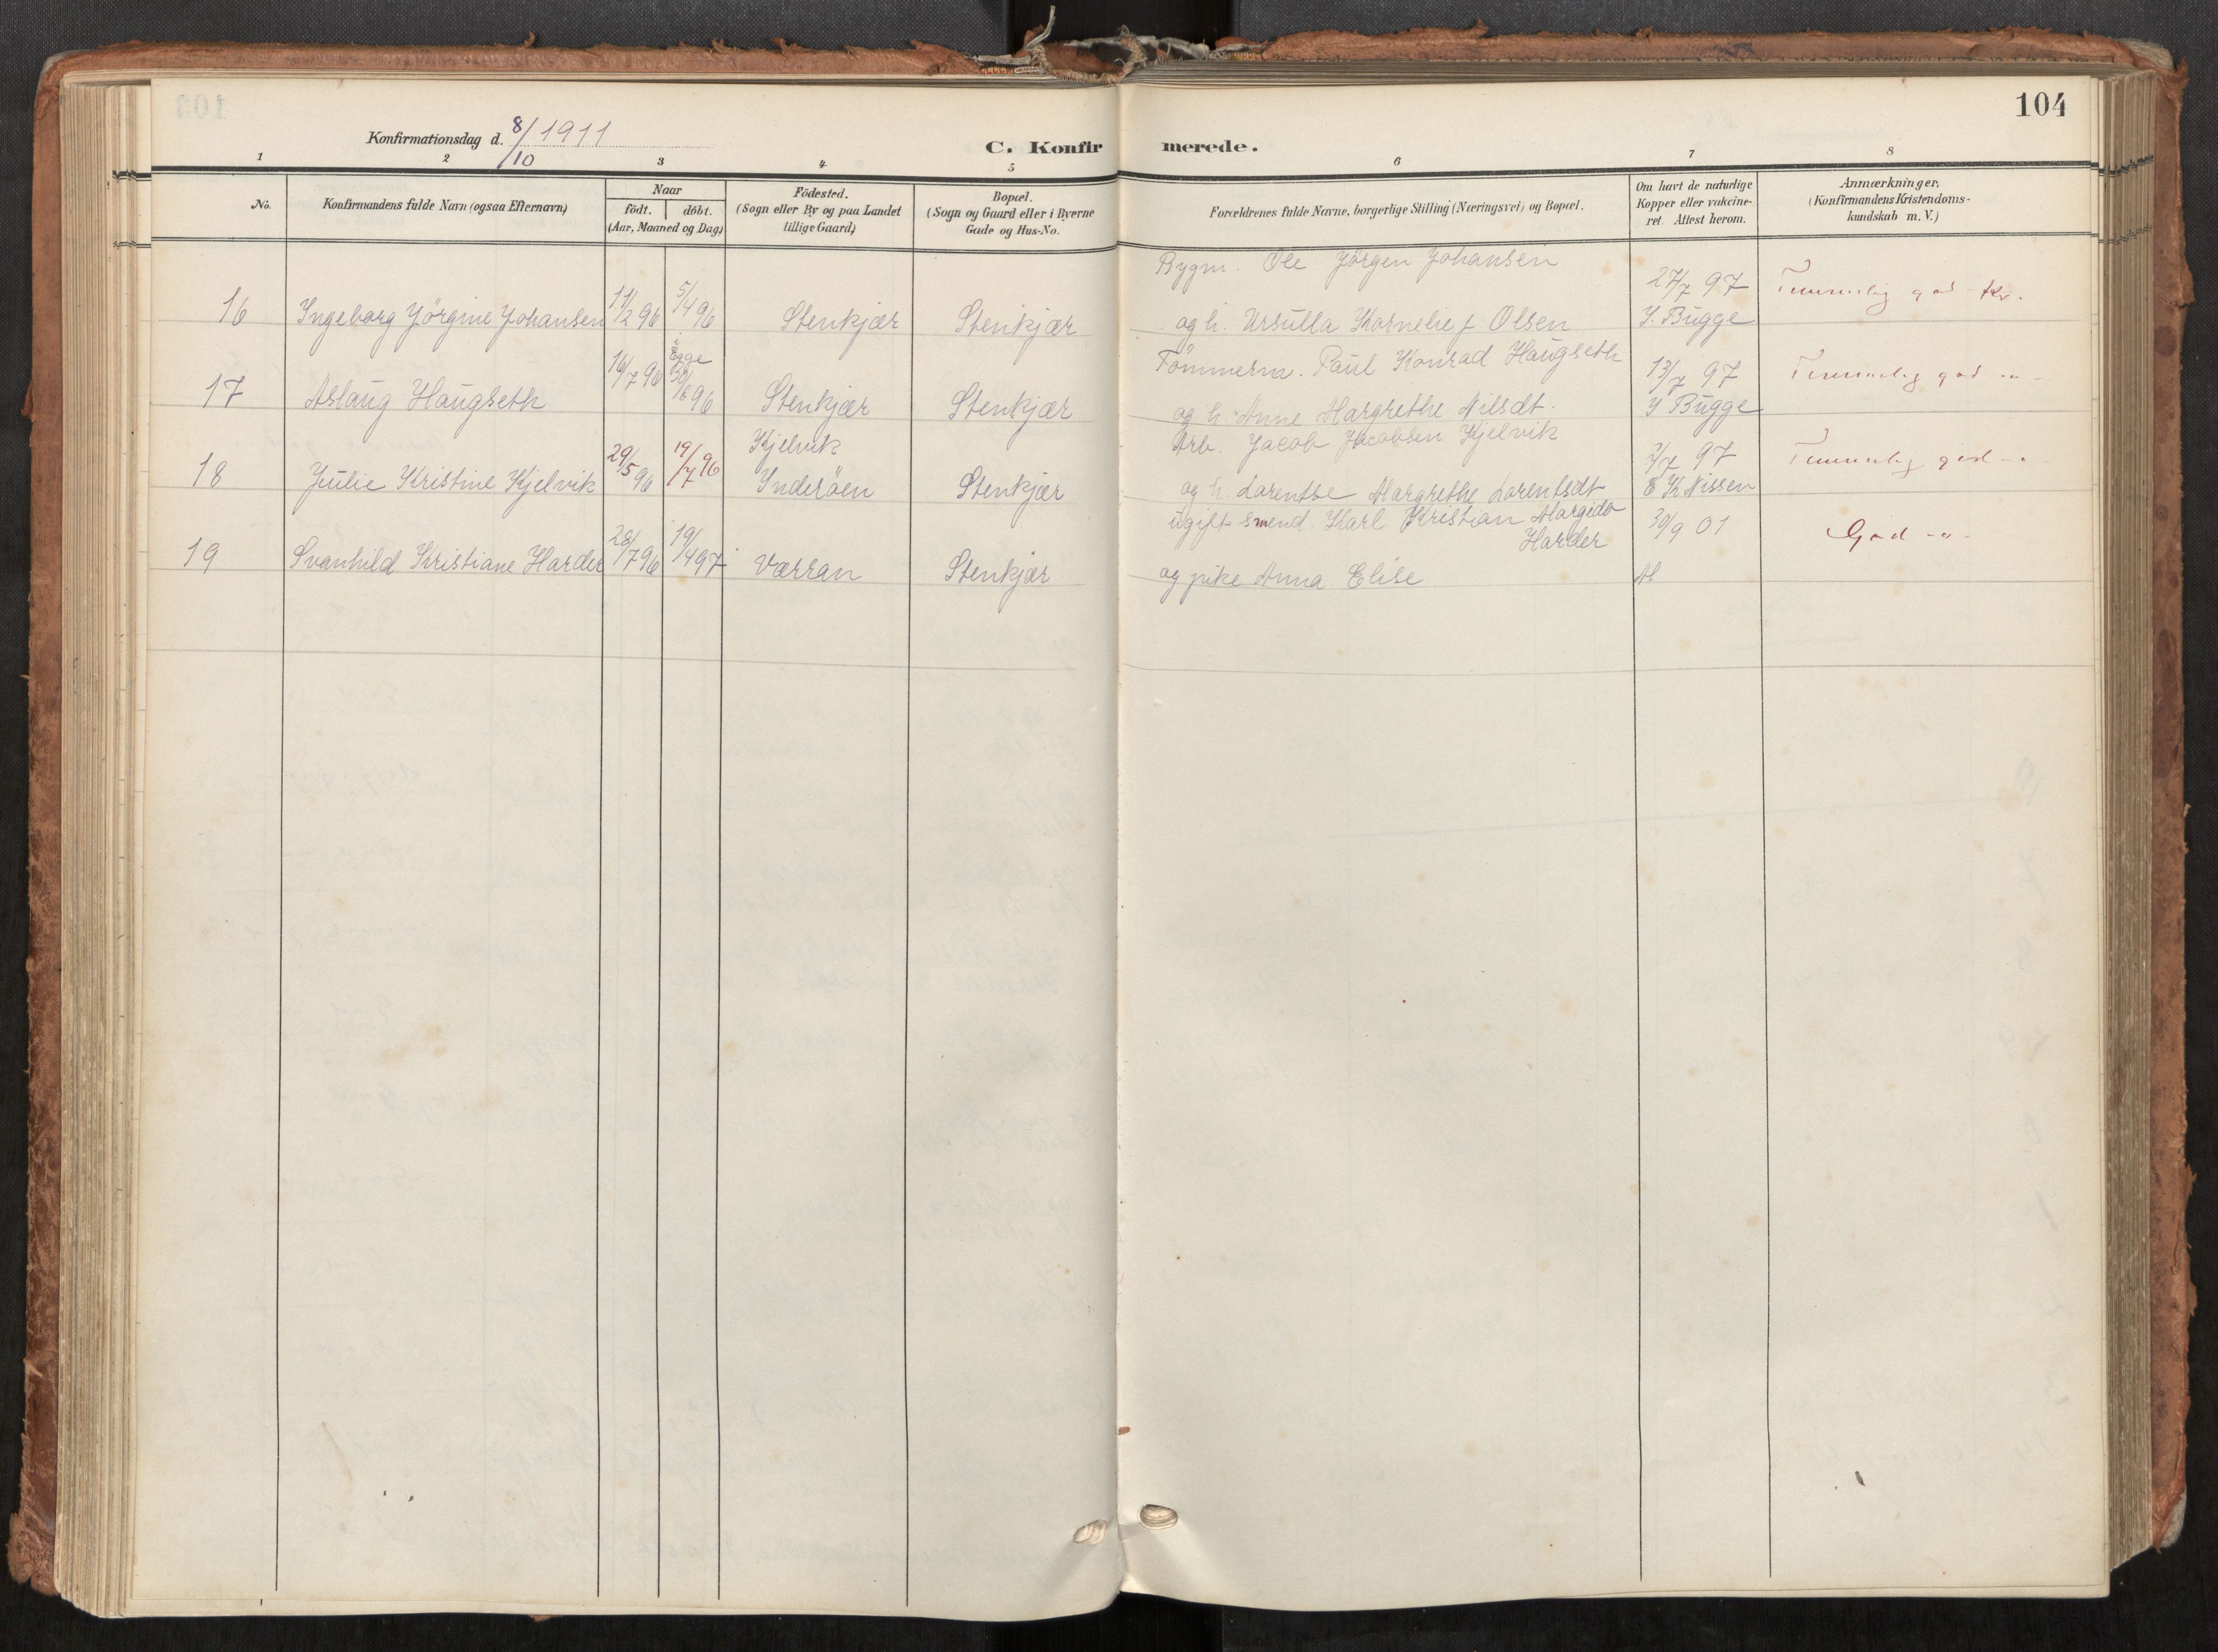 104
Konfirmationsdag d. 8/10 1911
C. Konfirmerede.
1 2 3 4 5 6 7 8
No.
Konfirmandens fulde Navn (ogsaa Efternavn)
Naar
födt. döbt.
(Aar, Maaned og Dag)
Födested.
(Sogn eller By og paa Landet
tillige Gaard)
Bopæl.
(Sogn og Gaard eller i Byerne
Gade og Hus-No.
Forældrenes fulde Navne, borgerlige Stilling (Næringsvei) og Bopæl.
Om havt de naturlige
Kopper eller vakcine-
ret. Attest herom.
Anmærkninger.
(Konfirmandens Kristendoms-
kundskab m. V.)
Bygm. Ole Jörgen Johansen
16 Ingeborg Jörgine Johansen 11/2 96 5/4 96 Stenkjær Stenkjær og h. Ursulla Kornelie f. Olsen 27/7 97 Temmelig god Kr.
J. Bugge
i Egge
Tömmerm. Paul Konrad Haugseth
17 Aslaug Haugseth 16/7 96 30/8 96 Stenkjær Stenkjær og h. Anne Margrethe Nilsdt. 13/7 97 Temmelig god -"-
J Bugge
Kjelvik
Arb. Jacob Jacobsen Kjelvik
18 Julie Kristine Kjelvik 29/5 96 19/7 96 Inderöen Stenkjær og h. Larentse Margrethe Lorentsdt 97 Temmelig god -"-
E K Nissen
ugift smend. Karl Kristian Margido
Harder
19 Svanhild Kristiane Harder 28/7 96 19/4 97 Værran Stenkjær og pike Anna Elise 30/9 01 God -"-